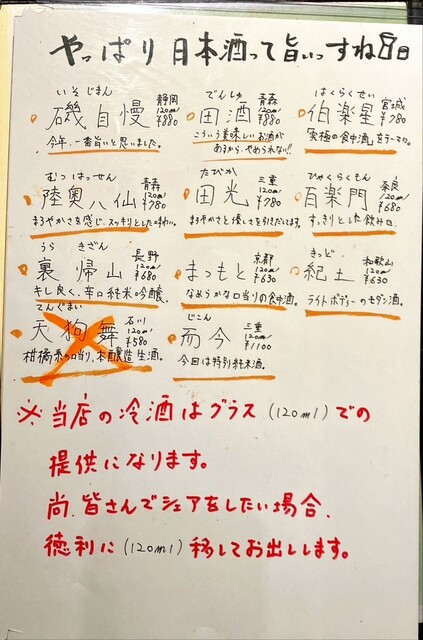 やっぱり日本酒って旨いっすね
いそじまん
磯自慢 静岡 120ml ¥880
今年、一番旨いと思いました。
でんしゅ
田酒 青森 120ml ¥880
こういう美味しいお酒が
あるから、やめられない!!
はくらくせい
伯楽星 宮城 120ml ¥780
究極の食中酒をテーマに。
むつはっせん
陸奥八仙 青森 120ml ¥780
まろやかさを感じ、スッキリとした味わい。
たびか
田光 三重 120ml ¥780
まろやかさと優しさを引きだしてます。
ひゃくらくもん
百楽門 奈良 120ml ¥680
すっきりとした飲み口。
うら きざん
裏 帰山 長野 120ml ¥680
キレ良く、辛口純米吟醸。
まつもと 京都 120ml ¥630
なめらかな口当りの食中酒。
きっど
紀土 和歌山 120ml ¥630
ライトボディーのモダン酒。
てんぐまい
天狗舞 石川 120ml ¥580
柑橘系の口当り、本醸造生酒。
じこん
而今 三重 120ml ¥1100
今回は特別純米酒。
※当店の冷酒はグラス(120ml)での
提供になります。
尚、皆さんでシェアをしたい場合、
徳利に(120ml)移してお出しします。